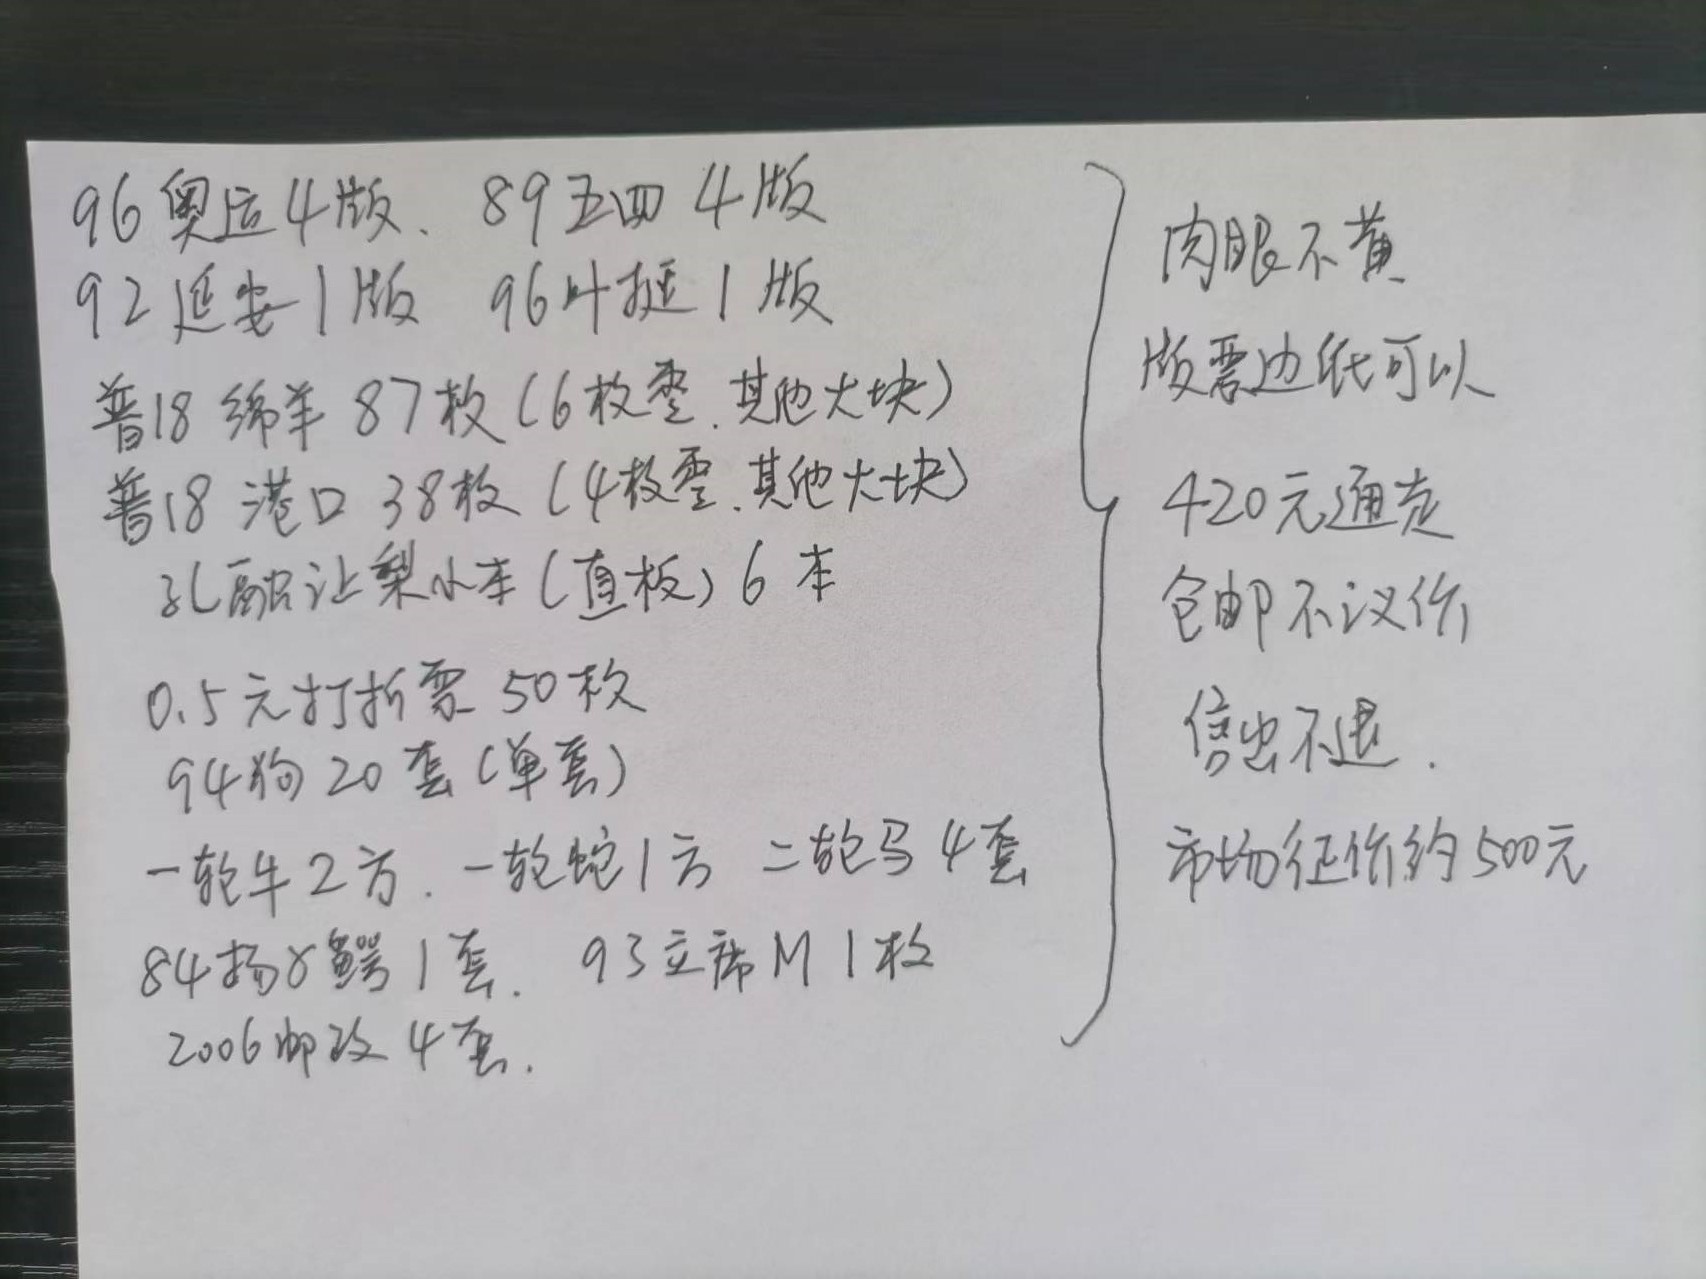 96奥运4版、 89五四 4版
92延安1版 96叶挺1版
普18 绵羊 87枚(6枚零.其他大块)
普18 港口 38枚(4枚零.其他大块)
孔融让梨小本(直板)6本
0.5元打折票 50枚
94狗20套(单套)
一轮牛2方. 一轮蛇1方 二轮马4套
84扬子鳄1套. 93立席M1枚
2006邮政4套.
肉眼不黄
版票边纸可以
420元通走
包邮不议价
售出不退.
市场征价约500元